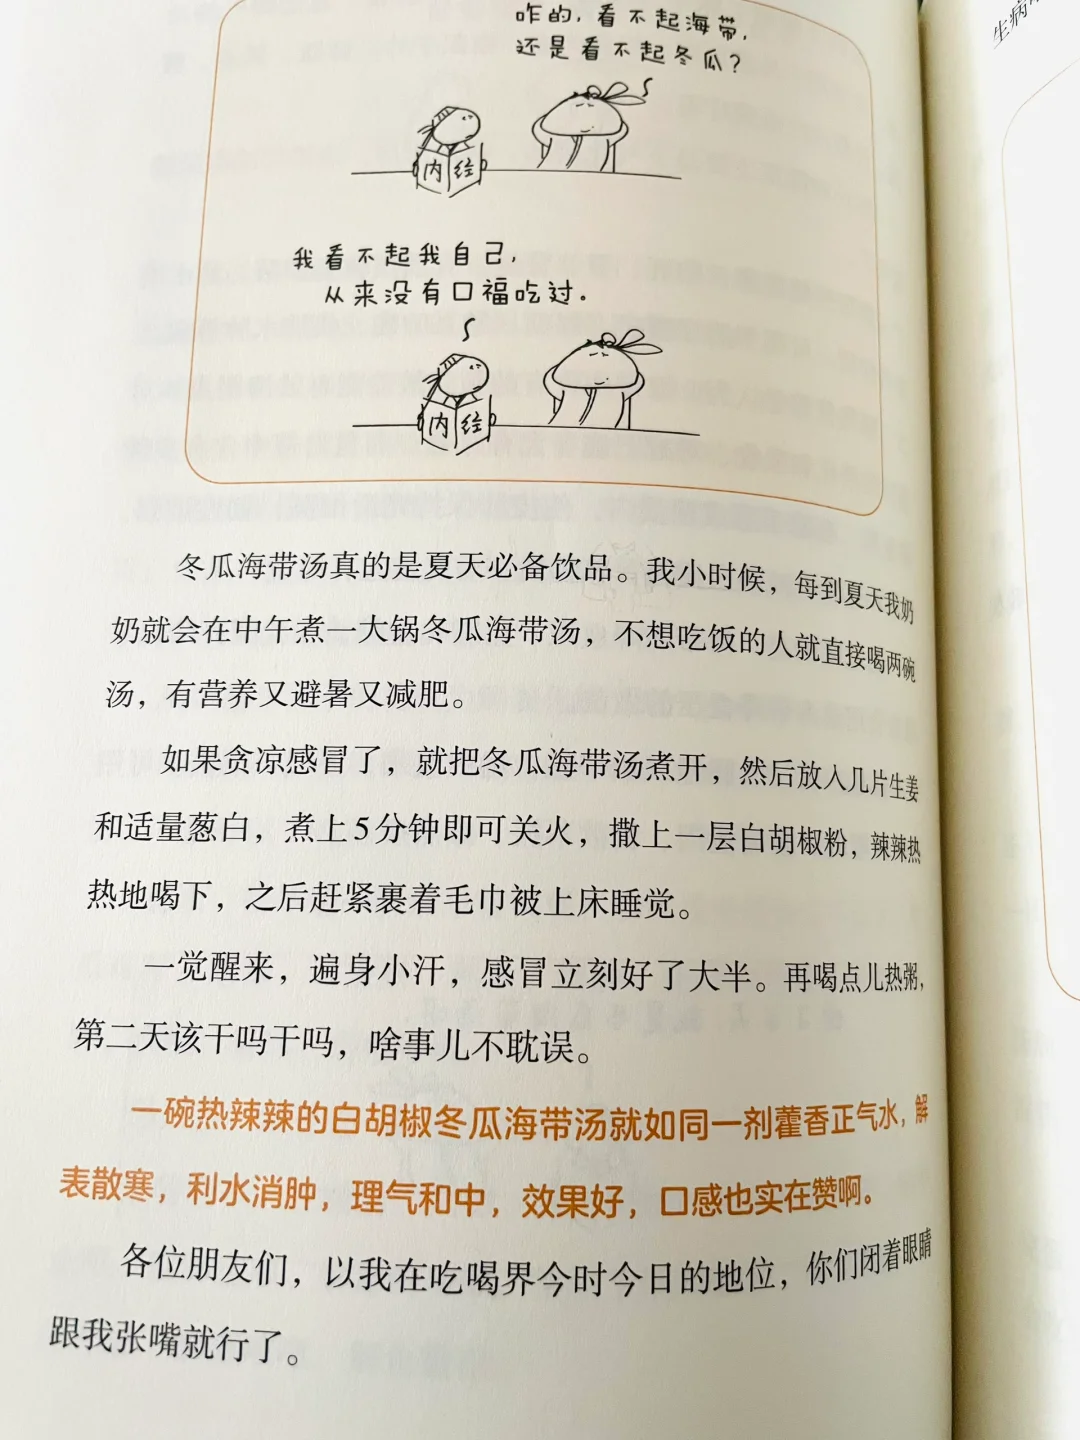 咋的，看不起海带，
还是看不起冬瓜？
内经
我看不起我自己，
从来没有口福吃过。
内经
冬瓜海带汤真的是夏天必备饮品。我小时候，每到夏天我奶
奶就会在中午煮一大锅冬瓜海带汤，不想吃饭的人就直接喝两碗
汤，有营养又避暑又减肥。
如果贪凉感冒了，就把冬瓜海带汤煮开，然后放入几片生姜
和适量葱白，煮上5分钟即可关火，撒上一层白胡椒粉，辣辣热
热地喝下，之后赶紧裹着毛巾被上床睡觉。
一觉醒来，遍身小汗，感冒立刻好了大半。再喝点儿热粥，
第二天该干吗干吗，啥事儿不耽误。
一碗热辣辣的白胡椒冬瓜海带汤就如同一剂藿香正气水，解
表散寒，利水消肿，理气和中，效果好，口感也实在赞啊。
各位朋友们，以我在吃喝界今时今日的地位，你们闭着眼睛
跟我张嘴就行了。
生病